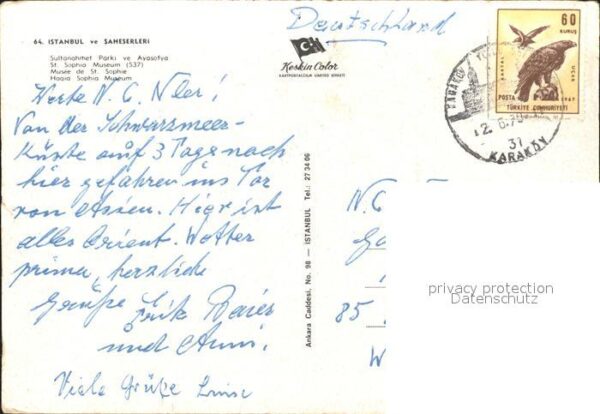 64. ISTANBUL ve ŞAHESERLERİ
Sultanahmet Parkı ve Ayasofya
St. Sophia Museum (537)
Musée de St. Sophie
Hagia Sophia Museum
Werte N. C. Nler!
Von der Schwarzmeer-
Küste auf 3 Tage nach
hier gefahren ins Tor
von Asien. Hier ist
alles Orient. Wetter
prima, herzliche
Grüße
und Anni.
Viele Grüße
Deutschland
Keskin Color
KARTPOSTALCILIK LIMITED ŞİRKETİ
Ankara Caddesi, No. 98 — ISTANBUL Tel.: 27 34 06
60
KURUŞ
KARTAL
UÇAK
POSTA
1967
TÜRKİYE CUMHURİYETİ
KARAKÖY
2.6.70
31
KARAKÖY
N. C
85
W
privacy protection
Datenschutz